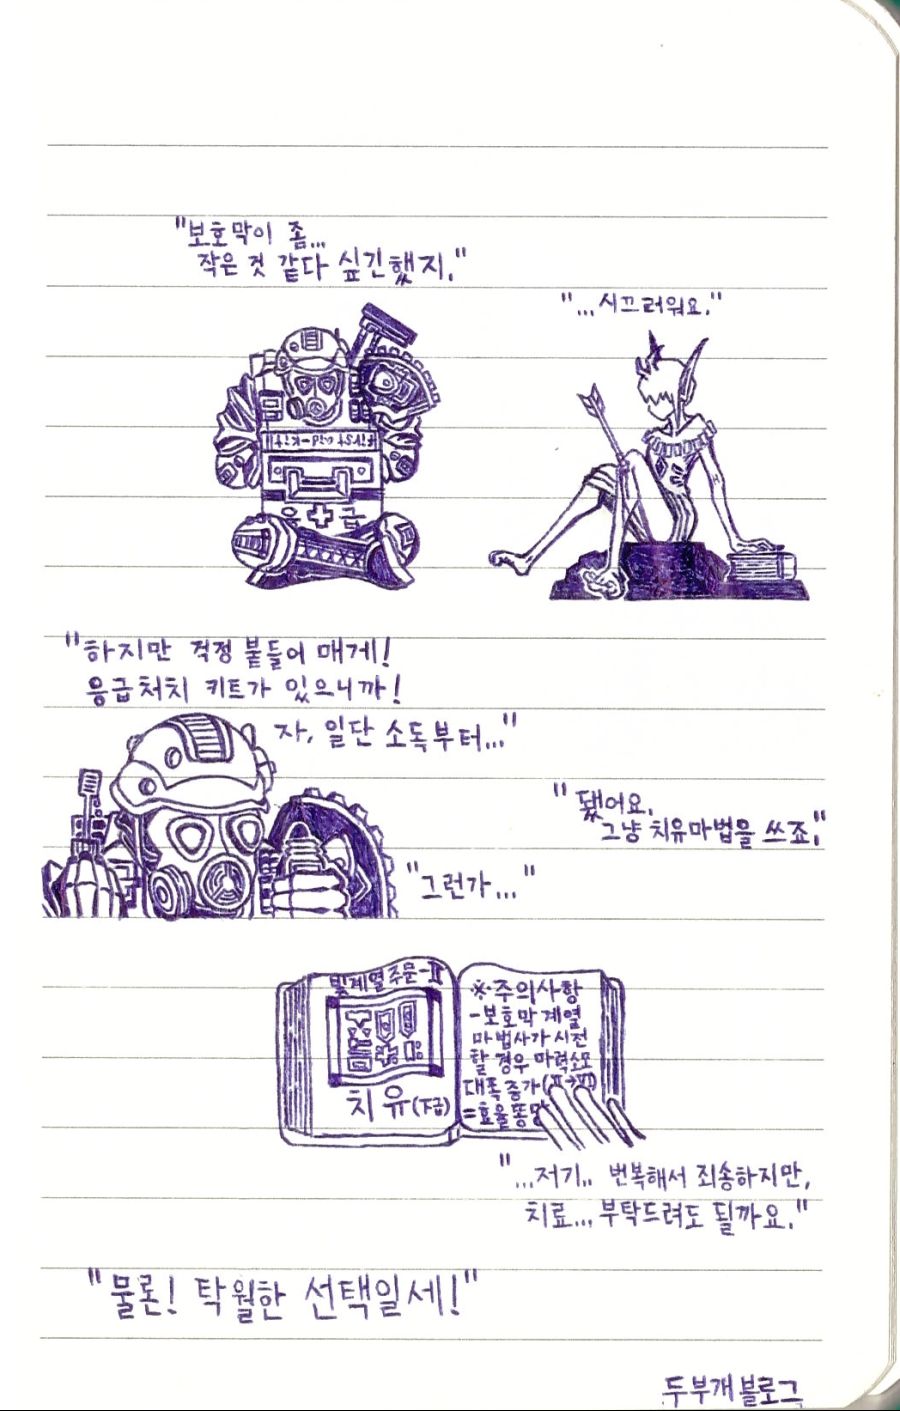 "보호막이 좀...
작은 것 같다 싶긴했지."
"...시끄러워요."
first aid-kit
응✚급
"하지만 걱정 붙들어 매게!
응급처치 키트가 있으니까!
자, 일단 소독부터..."
"됐어요.
그냥 치유마법을 쓰죠."
"그런가..."
빛계열주문-Ⅱ
치유(下급)
※주의사항
-보호막 계열
마법사가 시전
할 경우 마력소모
대폭 증가(Ⅱ→Ⅵ)
=효율똥망
"...저기.. 번복해서 죄송하지만,
치료... 부탁드려도 될까요."
"물론! 탁월한 선택일세!"
두부개블로그